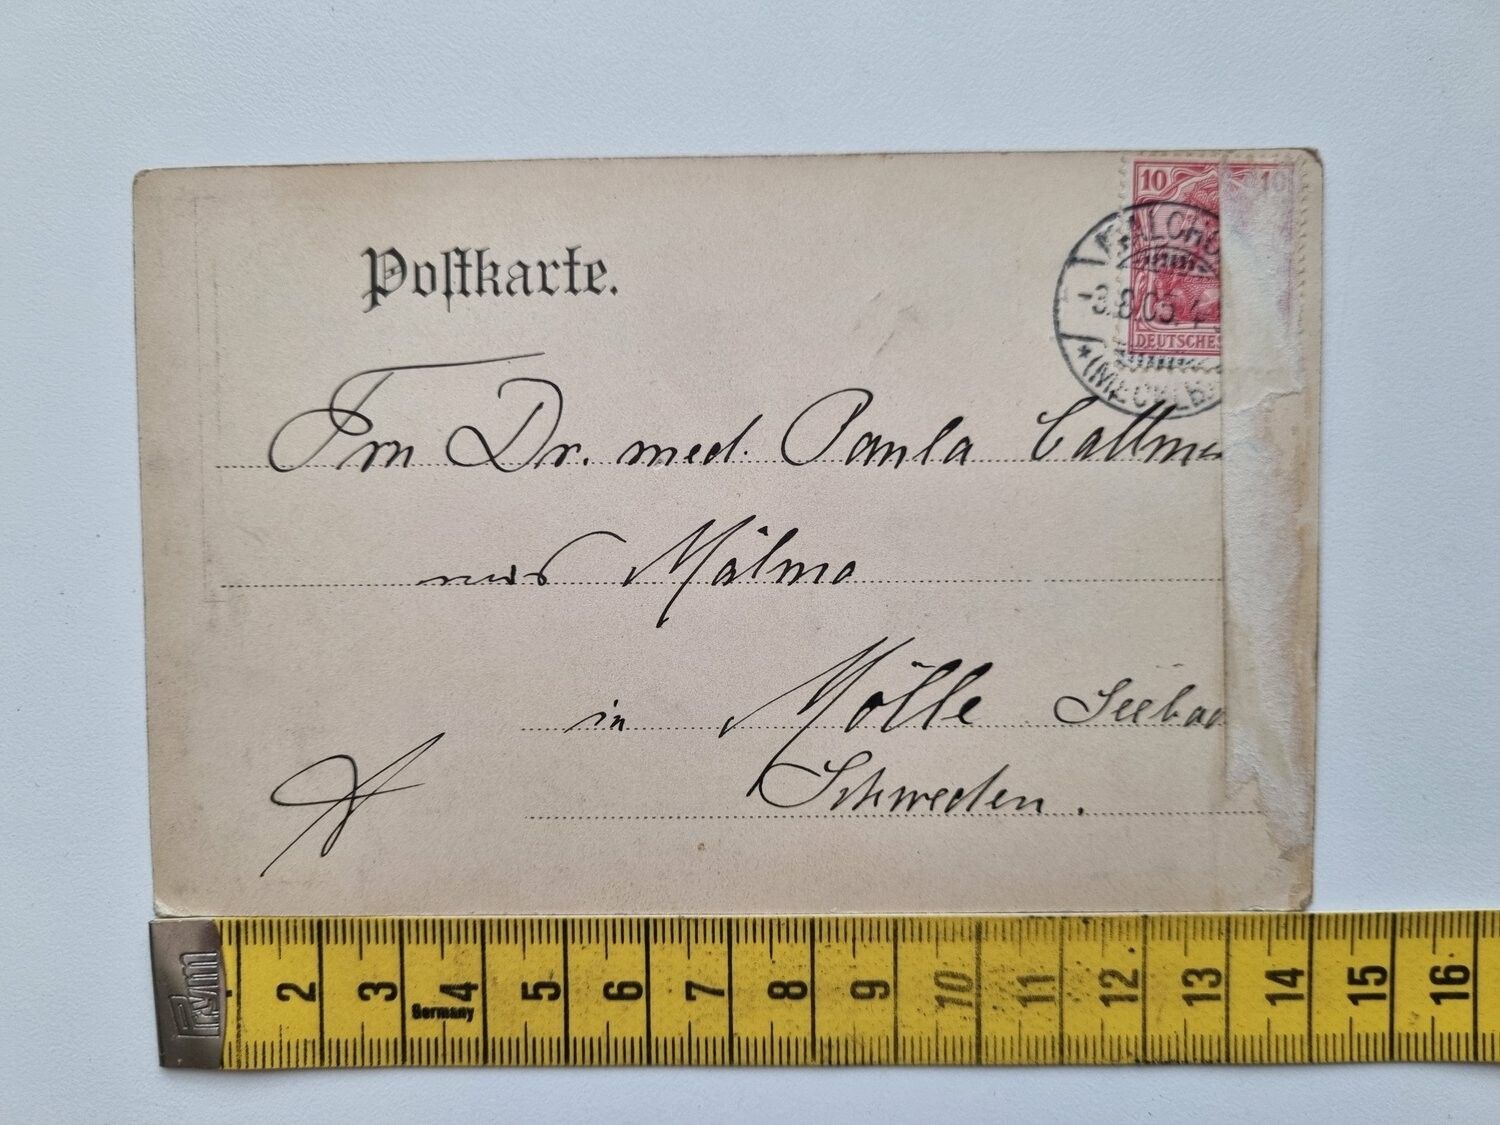 10 10
MALCHO
-3.8.05. 4
DEUTSCHES
* (MECKLB.
Postkarte.
Frn Dr. med. Paula Callme
aus Malmö
in Mölle Seebad
Schweden.
Prym
2 3 4 5 6 7 8 9 10 11 12 13 14 15 16
Germany